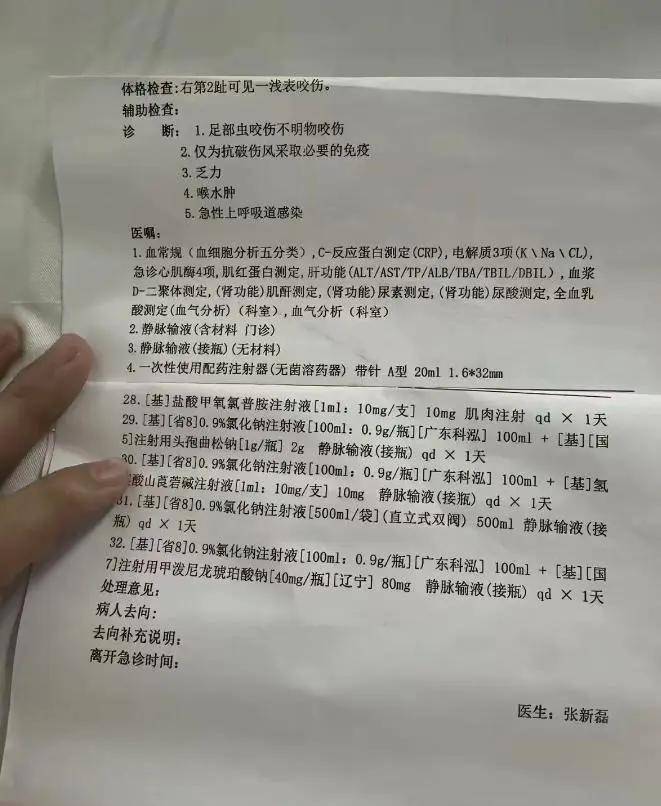 体格检查:右第2趾可见一浅表咬伤。
辅助检查:
诊 断: 1.足部虫咬伤不明物咬伤
2.仅为抗破伤风采取必要的免疫
3.乏力
4.喉水肿
5.急性上呼吸道感染
医嘱:
1.血常规(血细胞分析五分类),C-反应蛋白测定(CRP),电解质3项(K\Na\CL),
急诊心肌酶4项,肌红蛋白测定,肝功能(ALT/AST/TP/ALB/TBA/TBIL/DBIL),血浆
D-二聚体测定,(肾功能)肌酐测定,(肾功能)尿素测定,(肾功能)尿酸测定,全血乳
酸测定(血气分析)(科室),血气分析(科室)
2.静脉输液(含材料 门诊)
3.静脉输液(接瓶)(无材料)
4.一次性使用配药注射器(无菌溶药器) 带针 A型 20ml 1.6*32mm
28.[基]盐酸甲氧氯普胺注射液[1ml: 10mg/支] 10mg 肌肉注射 qd × 1天
29.[基][省8]0.9%氯化钠注射液[100ml: 0.9g/瓶][广东科泓] 100ml + [基][国
5]注射用头孢曲松钠[1g/瓶] 2g 静脉输液(接瓶) qd × 1天
30.[基][省8]0.9%氯化钠注射液[100ml: 0.9g/瓶][广东科泓] 100ml + [基]氢
酸山莨菪碱注射液[1ml: 10mg/支] 10mg 静脉输液(接瓶) qd × 1天
31.[基][省8]0.9%氯化钠注射液[500ml/袋](直立式双阀) 500ml 静脉输液(接
瓶) qd × 1天
32.[基][省8]0.9%氯化钠注射液[100ml: 0.9g/瓶][广东科泓] 100ml + [基][国
7]注射用甲泼尼龙琥珀酸钠[40mg/瓶][辽宁] 80mg 静脉输液(接瓶) qd × 1天
处理意见:
病人去向:
去向补充说明:
离开急诊时间:
医生: 张新磊